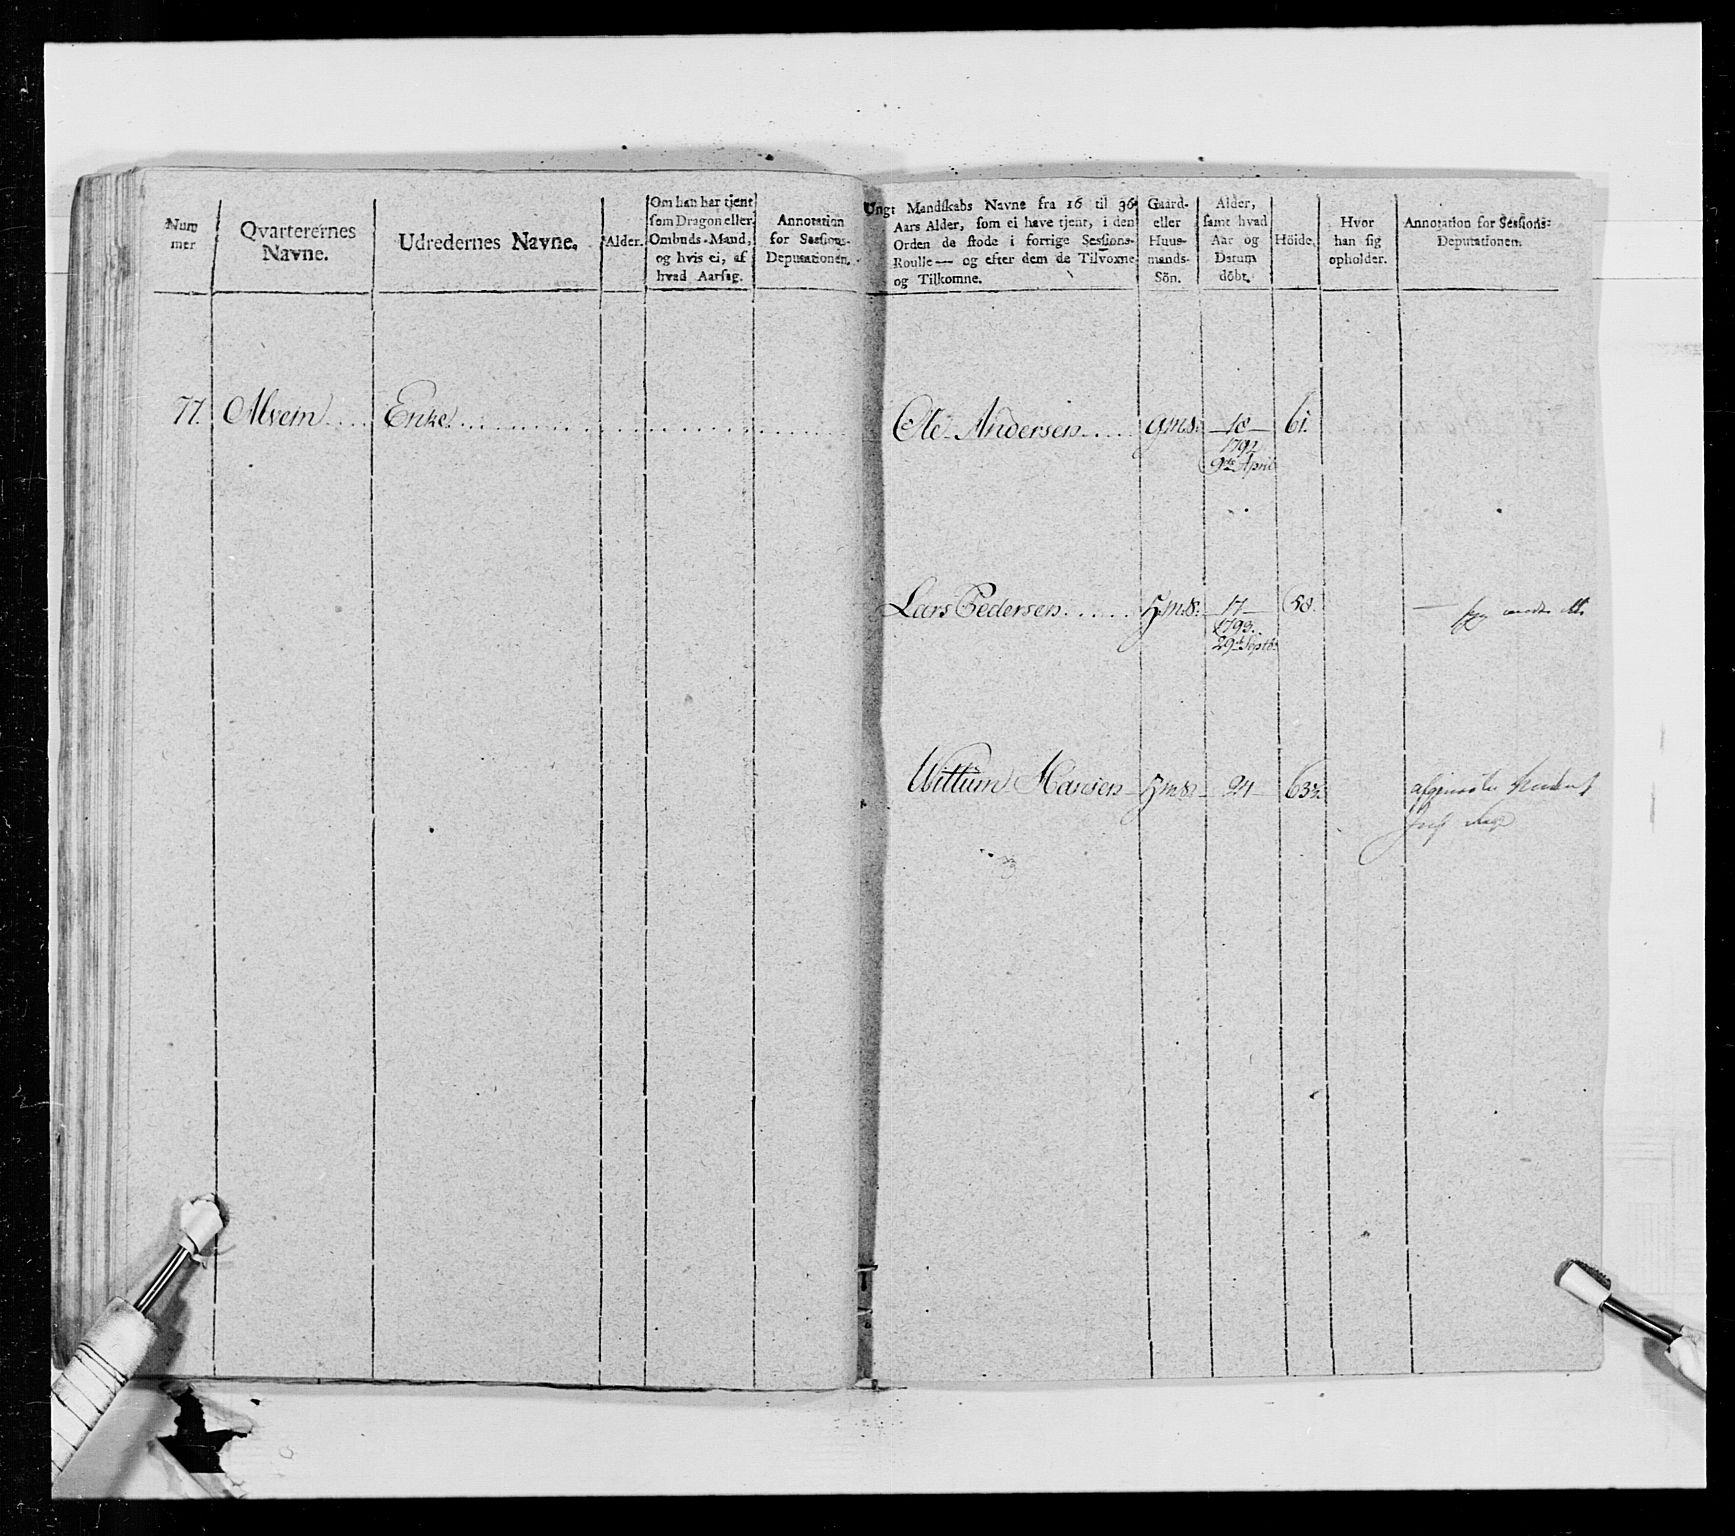 Num
mer
Qvarterernes
Navne.
Udredernes Navne.
Alder.
Om han har tjent
som Dragon eller
Ombuds-Mand,
og hvis ei, af
hvad Aarsag.
Annotation
for Sessions-
Deputationen.
Ungt Mandskabs Navne fra 16 til 36
Aars Alder, som ei have tjent, i den
Orden de stode i forrige Sessions-
Roulle — og efter dem de Tilvoxne
og Tilkomne.
Gaard-
eller
Huus-
mands-
Sön.
Alder,
samt hvad
Aar og
Datum
döbt.
Höide.
Hvor
han sig
opholder.
Annotation for Sessions-
Deputationen.
77. Alvein.... Enke
Ole Andersen..... gms. 18 61.
1792
9de April
Lars Pedersen...... Hms. 17 58.
1793.
29de Septb:
Willum Hansen Hms. 21 63